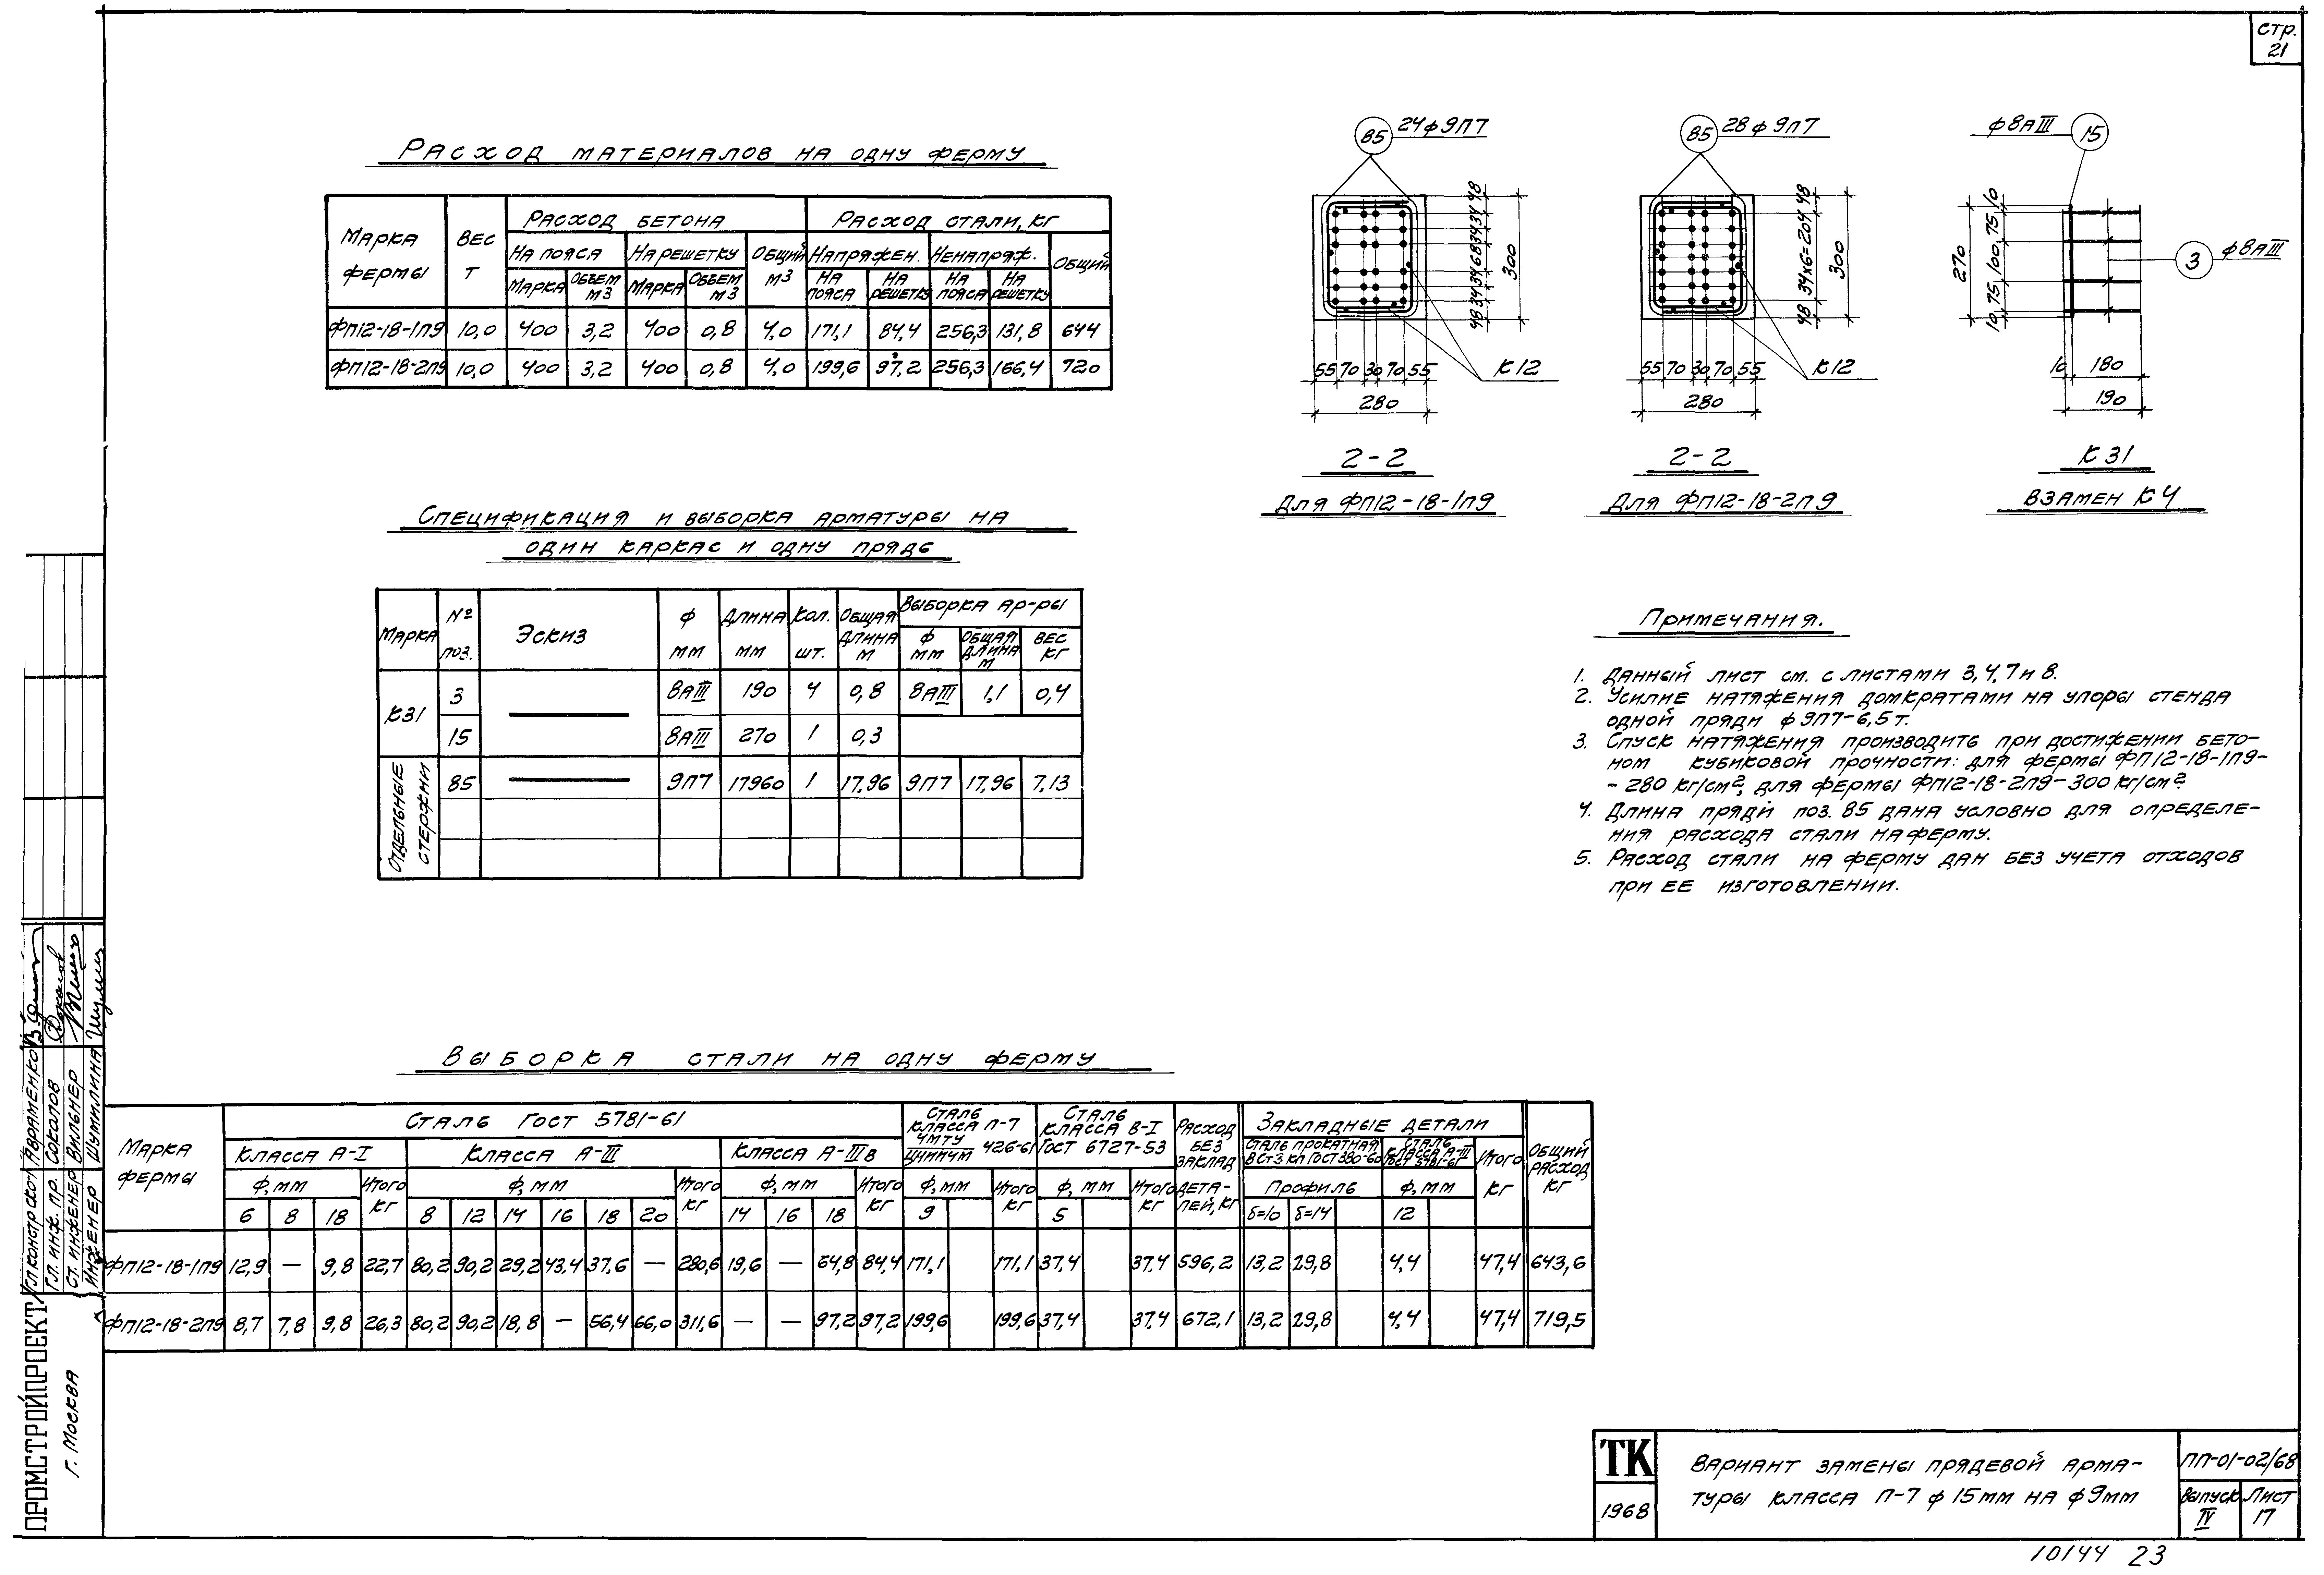 Стр.
21
Расход материалов на одну ферму
Марка фермы
Вес т
Расход бетона
Расход стали, кг
На пояса
На решетку
Общий м3
Напряжен.
Ненапряж.
Общий
Марка
Объем м3
Марка
Объем м3
На пояса
На решетку
На пояса
На решетку
ФП12-18-1П9 10,0 400 3,2 400 0,8 4,0 171,1 84,4 256,3 131,8 644
ФП12-18-2П9 10,0 400 3,2 400 0,8 4,0 199,6 97,2 256,3 166,4 720
85 24ф9П7
48 34 34 68 34 34 48
300
К12
55 70 30 70 55
280
2-2
Для ФП12-18-1П9
85 28ф9П7
48 34х6=204 48
300
К12
55 70 30 70 55
280
2-2
Для ФП12-18-2П9
ф8АIII 15
10 75 100 75 10
270
3 ф8АIII
10 180
190
К31
Взамен К4
Спецификация и выборка арматуры на
один каркас и одну прядь
Марка
№ поз.
Эскиз
ф мм
Длина мм
Кол. шт.
Общая длина м
Выборка ар-ры
ф мм
Общая длина м
Вес кг
К31
3 8АIII 190 4 0,8 8АIII 1,1 0,4
15 8АIII 270 1 0,3
Отдельные стержни
85 9П7 17960 1 17,96 9П7 17,96 7,13
Примечания.
1. Данный лист см. с листами 3,4,7 и 8.
2. Усилие натяжения домкратами на упоры стенда
одной пряди ф 9П7-6,5т.
3. Спуск натяжения производить при достижении бето-
ном кубиковой прочности: для фермы ФП12-18-1П9-
- 280 кг/см², для фермы ФП12-18-2П9-300 кг/см².
4. Длина пряди поз. 85 дана условно для определе-
ния расхода стали на ферму.
5. Расход стали на ферму дан без учета отходов
при ее изготовлении.
Выборка стали на одну ферму
Марка фермы
Сталь ГОСТ 5781-61
Сталь класса П-7 ЧМТУ/ЦНИИЧМ 426-61
Сталь класса В-I ГОСТ 6727-53
Расход без заклад. деталей, кг
Закладные детали
Общий расход кг
Класса А-I
Класса А-III
Класса А-IIIв
Сталь прокатная ВСт3 кп ГОСТ 380-60
Сталь класса А-III ГОСТ 5781-61
Итого кг
ф, мм Итого кг ф, мм Итого кг ф, мм Итого кг ф, мм Итого кг ф, мм Итого кг Профиль ф, мм
6 8 18 8 12 14 16 18 20 14 16 18 9 5 δ=10 δ=14 12
ФП12-18-1П9 12,9 — 9,8 22,7 80,2 90,2 29,2 43,4 37,6 — 280,6 19,6 — 64,8 84,4 171,1 171,1 37,4 37,4 596,2 13,2 29,8 4,4 47,4 643,6
ФП12-18-2П9 8,7 7,8 9,8 26,3 80,2 90,2 18,8 — 56,4 66,0 311,6 — — 97,2 97,2 199,6 199,6 37,4 37,4 672,1 13,2 29,8 4,4 47,4 719,5
Гл. конструкт. Авраменко
Гл. инж. пр. Соколов
Ст. инженер Вильнер
Инженер Шумилина
ПРОМСТРОЙПРОЕКТ
г. Москва
ТК
1968
Вариант замены прядевой арма-
туры класса П-7 ф 15мм на ф9мм
ПП-01-02/68
Выпуск IV
Лист 17
10144 23